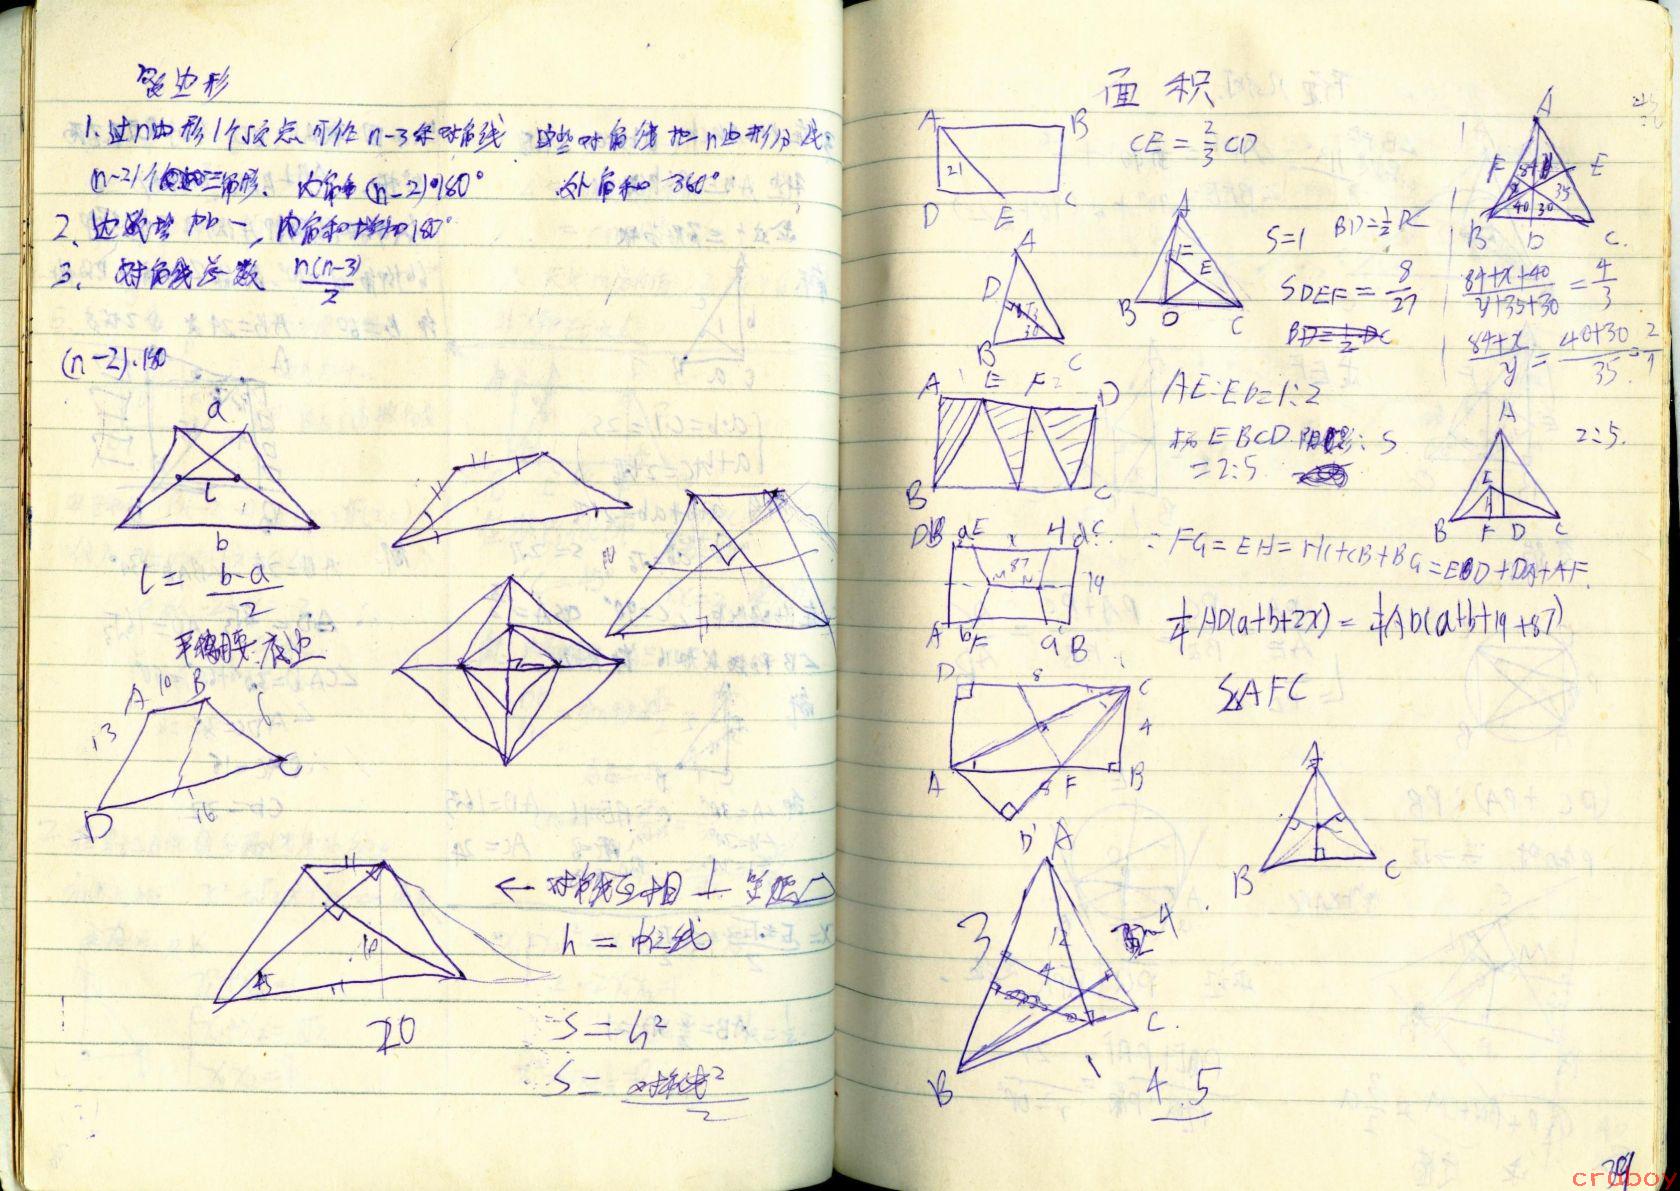 多边形
1. 过n边形1个顶点可作n-3条对角线 这些对角线把n边形分成
(n-2)个三角形. 内角和(n-2)•180° 外角和 360°
2、边数增加一, 内角和增加180°
3、对角线总数 n(n-3)/2
(n-2).180
a
l
b
l = b-a/2
平移腰:底边
A 10 B
13
C
D
16
45
20
← 对角线互相⊥ 等腰
h = 中位线
S = h²
S = 对角线²/2
面 积
A B
CE = 2/3 CD
21
D E C
A
D
B C
A
F
E
B D C
S=1 BD=1/2 DC
S DEF = 8/27
A
F 84 y E
x 35
40 30
B D C.
84+x+40/y+35+30 = 4/3
84+x/y = 40+30/35 = 2/1
A E F D
B C
AE:Eb=1:2
EBCD 阴影: S
= 2:5
A
2:5.
E
B F D C
a E H d C
x
M 87 N
19
A b F a B
FG = EH = HC+CB+BG = ED+DA+AF.
1/4 AD(a+b+2x) = 1/4 AD(a+b+19+87)
D 8 C
4
A 8 F B
D'
S△AFC
A
B C
A
3
12
4
4
C.
B
1
4.5
39
cruboy